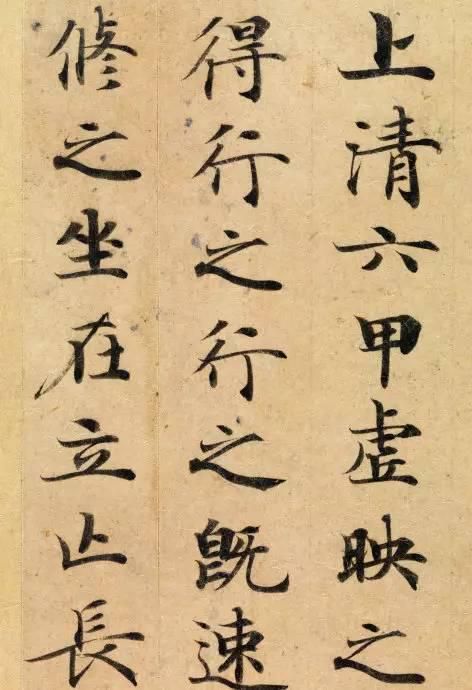 上清六甲虛映之
得行之行之既速
脩之坐在立亡長